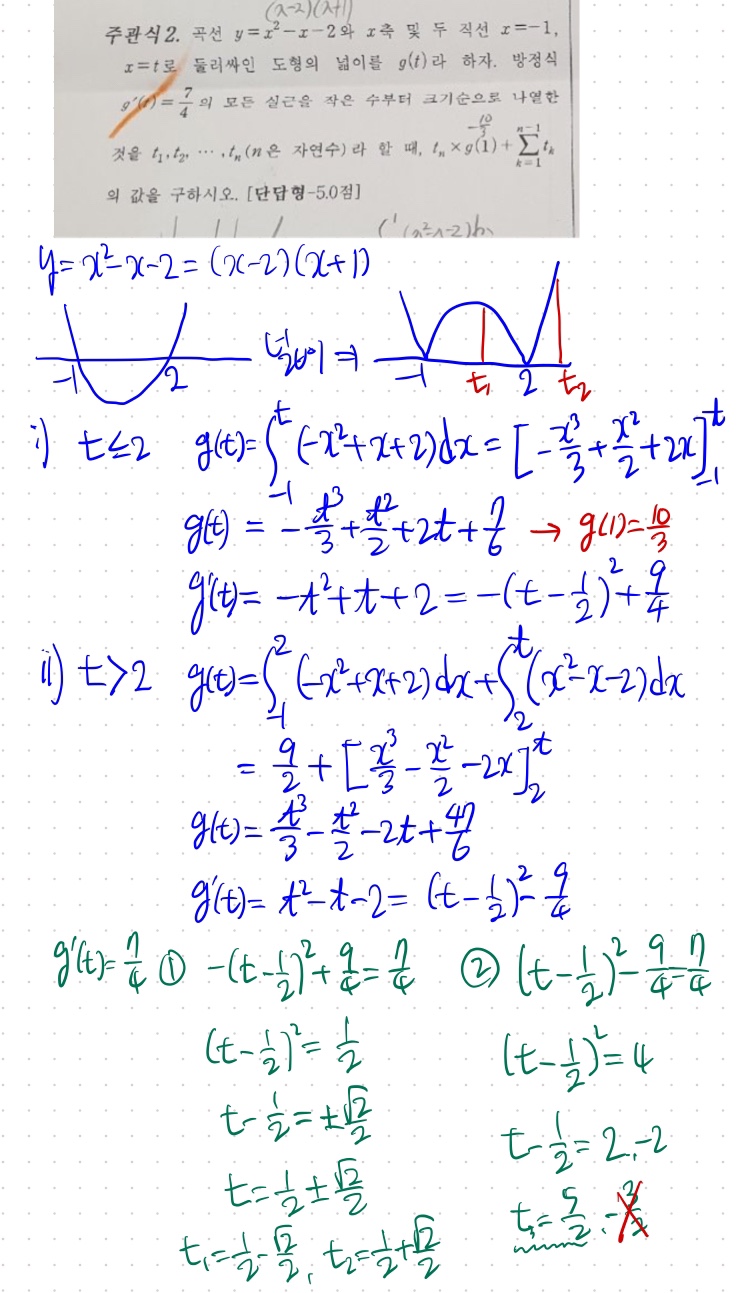 (x-2)(x+1)
주관식 2. 곡선 y=x²-x-2와 x축 및 두 직선 x=-1,
x=t로 둘러싸인 도형의 넓이를 g(t)라 하자. 방정식
g′(t)=7/4 의 모든 실근을 작은 수부터 크기순으로 나열한
-10/3
것을 t₁, t₂, ⋯, tₙ(n은 자연수)라 할 때, tₙ×g(1)+∑_{k=1}^{n-1} tₖ
의 값을 구하시오. [단답형-5.0점]
y=x²-x-2=(x-2)(x+1)
-1 2 넓이 ⇒ -1 t₁ 2 t₂
i) t≤2 g(t)=∫_{-1}^{t}(-x²+x+2)dx=[-x³/3+x²/2+2x]_{-1}^{t}
g(t)=-t³/3+t²/2+2t+7/6 → g(1)=10/3
g′(t)=-t²+t+2=-(t-1/2)²+9/4
ii) t>2 g(t)=∫_{-1}^{2}(-x²+x+2)dx+∫_{2}^{t}(x²-x-2)dx
=9/2+[x³/3-x²/2-2x]_{2}^{t}
g(t)=t³/3-t²/2-2t+47/6
g′(t)=t²-t-2=(t-1/2)²-9/4
g′(t)=7/4 ① -(t-1/2)²+9/4=7/4 ② (t-1/2)²-9/4=7/4
(t-1/2)²=1/2 (t-1/2)²=4
t-1/2=±√2/2 t-1/2=2,-2
t=1/2±√2/2 t₃=5/2,-3/2
t₁=1/2-√2/2, t₂=1/2+√2/2